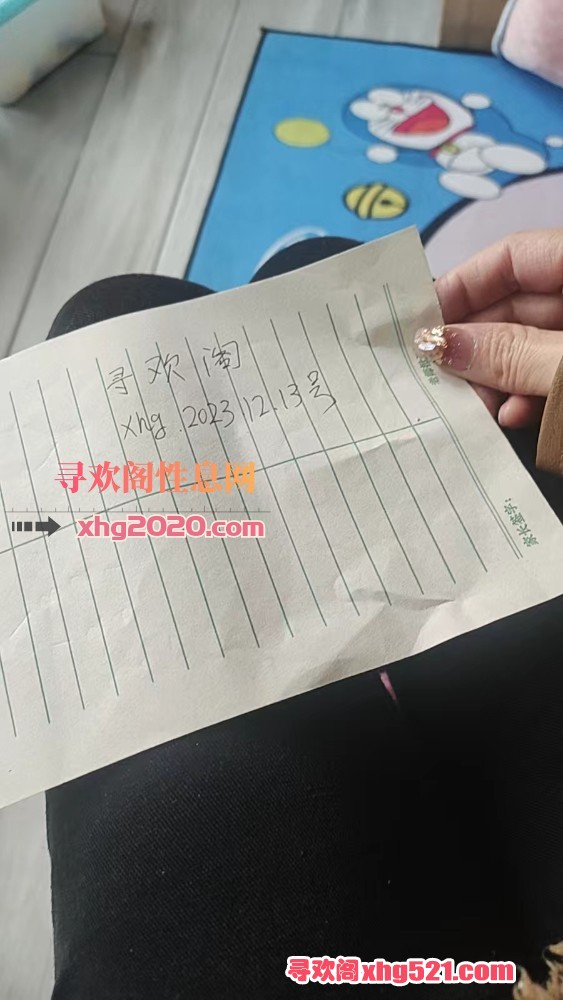 寻欢阁
xhg.2023.12.13号
寻欢阁性息网
xhg2020.com
家长签字:
寻欢阁xhg521.com